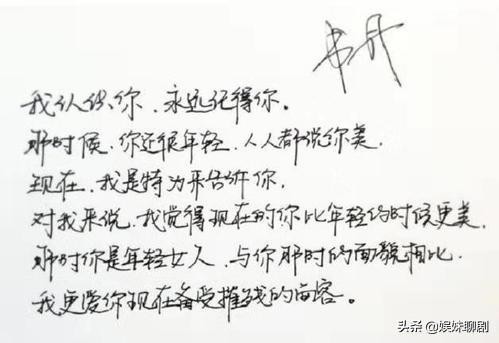 我认识你，永远记得你。
那时候，你还很年轻，人人都说你美，
现在，我是特为来告诉你，
对我来说，我觉得现在的你比年轻的时候更美，
那时你是年轻女人，与你那时的面貌相比，
我更爱你现在备受摧残的面容。
头条 @娱妹聊剧